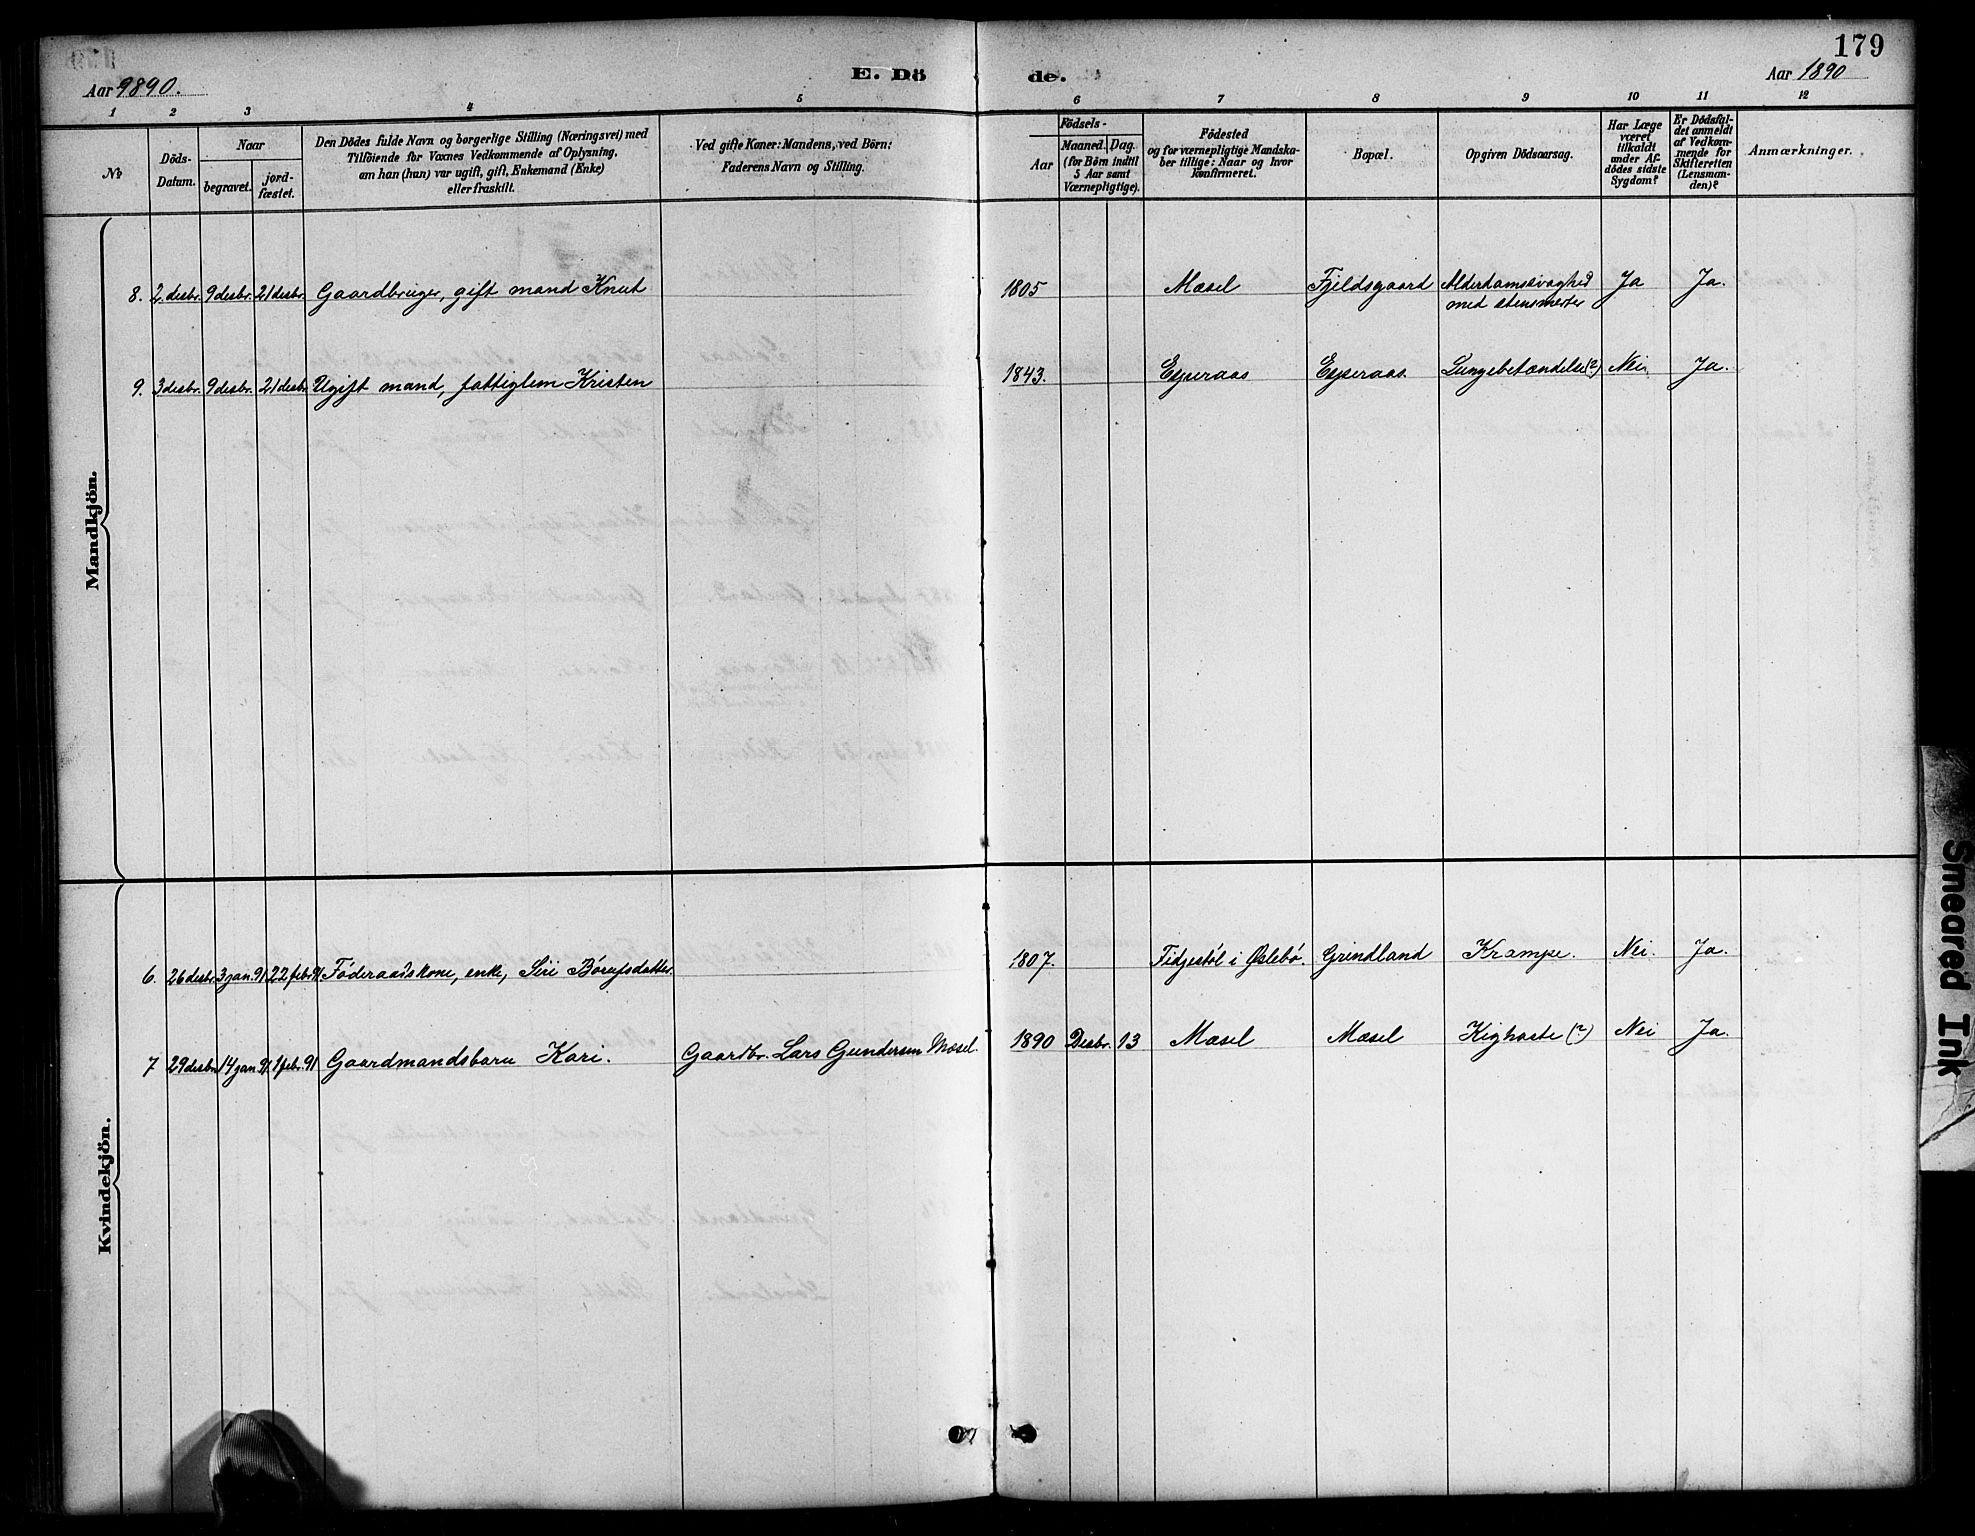 179
Aar 9890.
E. Dö
de.
Aar 1890
1 2 3 4 5 6 7 8 9 10 11 12
№
Döds-
Datum.
Naar
begravet.
jord-
fæstet.
Den Dödes fulde Navn og borgerlige Stilling (Næringsvei) med
Tilföiende for Voxnes Vedkommende af Oplysning,
om han (hun) var ugift, gift, Enkemand (Enke)
eller fraskilt.
Ved gifte Koner: Mandens, ved Börn:
Faderens Navn og Stilling.
Födsels-
Aar
Maaned. Dag.
(for Börn indtil
5 Aar samt
Værnepligtige).
Födested
og for værnepligtige Mandska-
ber tillige: Naar og hvor
konfirmeret.
Bopæl.
Opgiven Dödsaarsag.
Har Læge
været
tilkaldt
under Af-
dödes sidste
Sygdom?
Er Dödsfal-
det anmeldt
af Vedkom-
mende for
Skifteretten
(Lensman-
den)?
Anmærkninger.
Mandkjön.
8. 2 desbr. 9 desbr. 21 desbr. Gaardbruger, gift mand Knut 1805 Mæsel Fjeldsgaard Alderdomssvaghed Ja Ja.
med stensmerter
9. 3 desbr. 9 desbr. 21 desbr. Ugift mand, fattiglem Kristen 1843. Esperaas Esperaas. Lungebetændelse (?) Nei. Ja.
Kvindekjön.
6. 26 desbr. 3 jan. 91. 22 febr 91. Föderaadskone, enke, Siri Börufsdatter. 1807. Fidjestöl i Öslebö. Grindland Krampe. Nei. Ja.
7 29 desbr. 14 jan 91. 1 febr. 91 Gaardmandsbarn Kari. Gaardbr. Lars Gundersen Mæsel. 1890 Desbr. 13 Mæsel Mæsel Kighoste (?) Nei Ja.
Smeared Ink